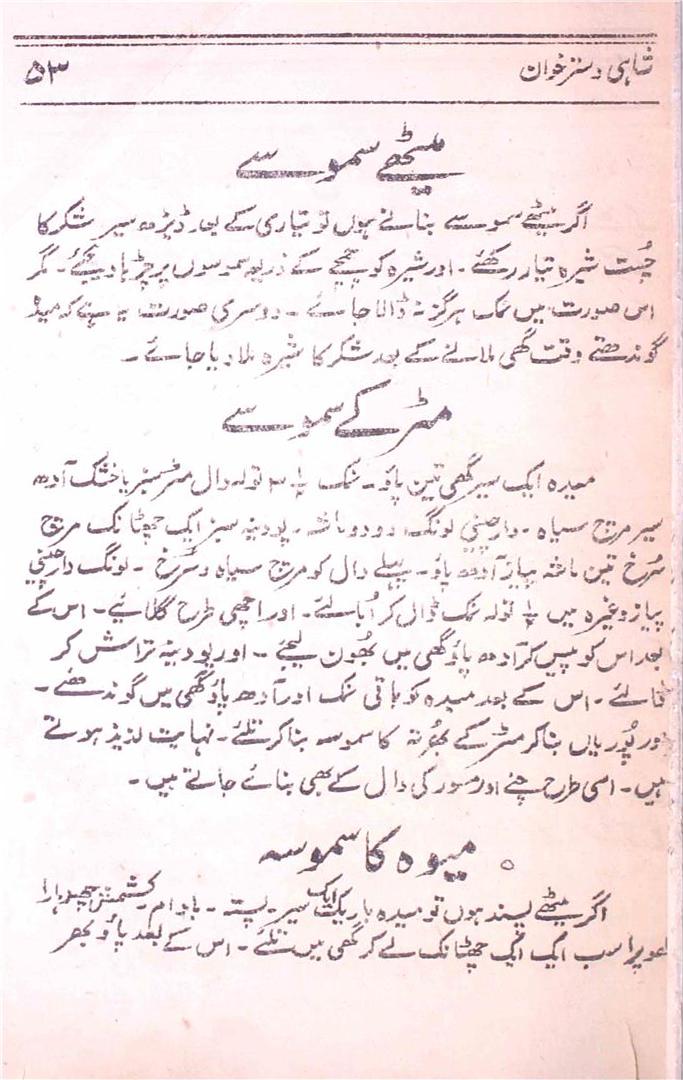 شاہی دسترخوان ۵۳
میٹھے سموسے
اگر میٹھے سموسے بنانے ہوں تو تیاری کے بعد ڈیڑھ سیر شکر کا
چُست شیرہ تیار رکھئے۔ اور شیرہ کو چمچے کے ذریعہ سموسوں پر چڑہا دیجئے۔ مگر
اس صورت میں نمک ہرگز نہ ڈالا جائے۔ دوسری صورت یہ ہے کہ میدہ
گوندھتے وقت گھی ملانے کے بعد شکر کا شیرہ ملا دیا جائے۔
مٹر کے سموسے
میدہ ایک سیر گھی تین پاؤ۔ نمک دال مٹر سبز یا خشک آدھ
سیر مرچ سیاہ۔ دارچینی لونگ دو دو ماشہ۔ پودینہ سبز ایک چھٹانک مرچ
سُرخ تین ماشہ پیاز آدھ پاؤ۔ پہلے دال کو مرچ سیاہ و سُرخ۔ لونگ دارچینی
پیاز وغیرہ میں تولہ نمک ڈال کر اُبالئے۔ اور اچھی طرح گلائیے۔ اس کے
بعد اس کو پیس کر آدھ پاؤ گھی میں بھُون لیجئے۔ اور پودینہ تراش کر
ملائے۔ اس کے بعد میدہ کو باقی نمک اور آدھ پاؤ گھی میں گوندھئے۔
اور پُوریاں بنا کر مٹر کے بھُرتہ کا سموسہ بنا کر تلئے۔ نہایت لذیذ ہوتے
ہیں۔ اسی طرح چنے اور مسور کی دال کے بھی بنائے جاتے ہیں۔
میوہ کا سموسہ
اگر میٹھے پسند ہوں تو میدہ باریک ایک سیر۔ پستہ۔ بادام۔ کشمش چھوہارا
کھوپرا سب ایک ایک چھٹانک لے کر گھی میں تلئے۔ اس کے بعد پاؤ بھر